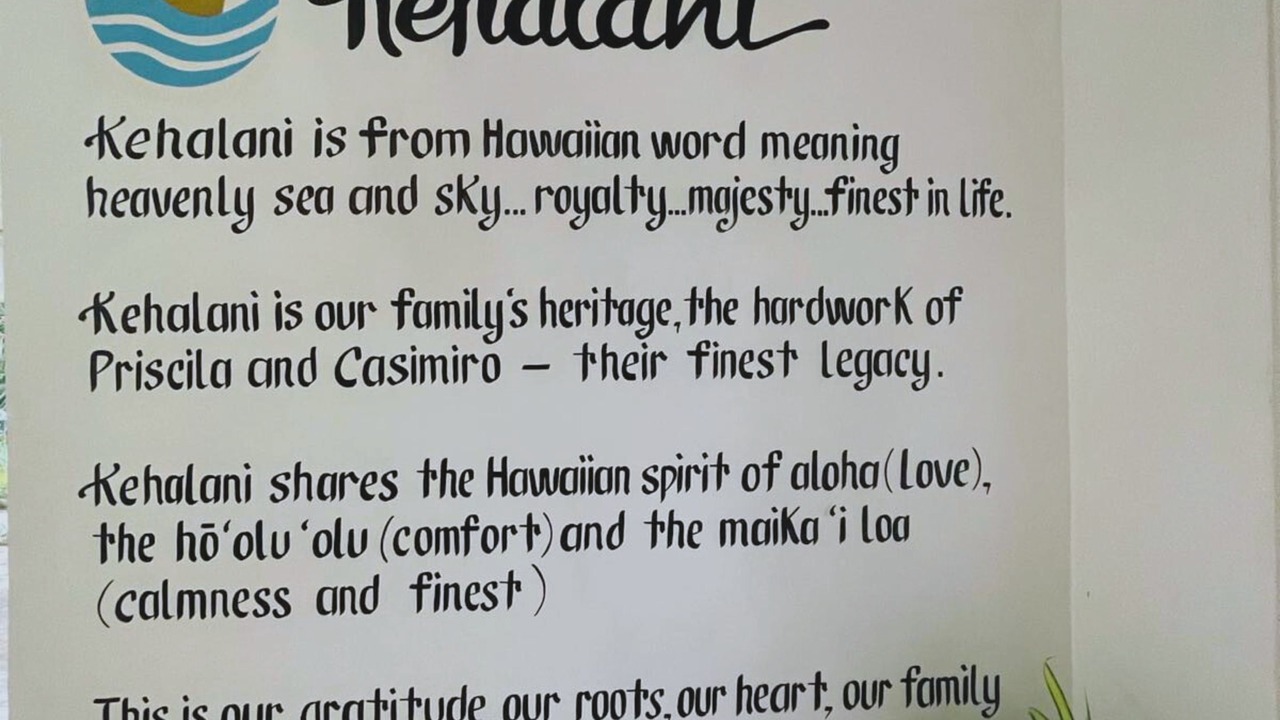 Kehalani
Kehalani is from Hawaiian word meaning
heavenly sea and sky...royalty...majesty...finest in life.
Kehalani is our family's heritage, the hardwork of
Priscila and Casimiro – their finest legacy.
Kehalani shares the Hawaiian spirit of aloha (Love),
the hō‘olu ‘olu (comfort) and the maika ‘i loa
(calmness and finest)
This is our gratitude, our roots, our heart, our family